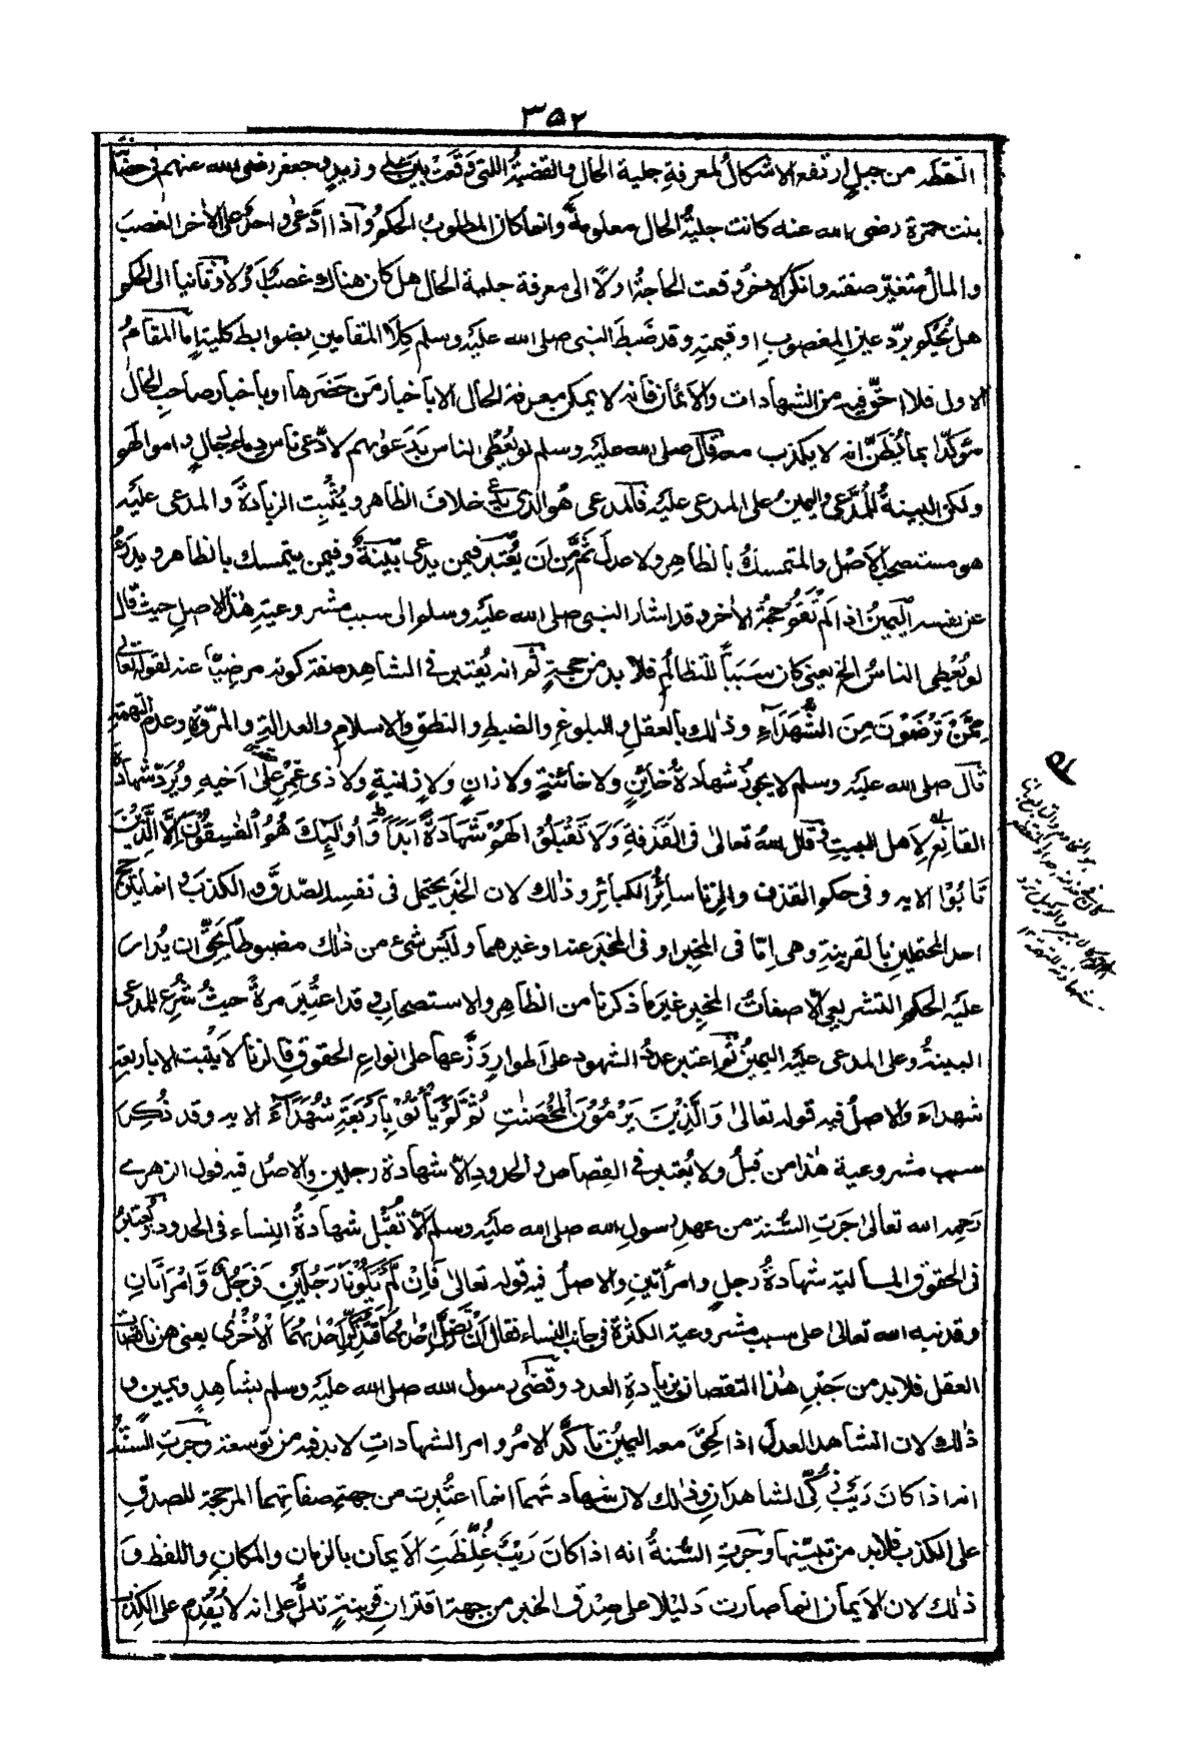 ٣٥٢
التقطه من جبل ارتفع الاشكال لمعرفة جلية الحال والقضية اللتى وَقَعَتْ بين على وزيد وجعفر رضى الله عنهم فى حضانة
بنت حمزة رضى الله عنه كانت جلية الحال معلومةً وانما كان المطلوب الحكم وَاذا ادَّعى واحد على الاٰخر الغصبَ
والمالُ متغيّر صفته وانكر الاٰخر وقعت الحاجة اولًا الى معرفة جلية الحال هل كان هناك غصبٌ اَو لا وثانيا الى الحكم
هل يُحكم بردّ عين المغصوبِ او قيمتِه وقد ضَبطَ النبى صلى الله عليه وسلم كِلَا المقامينِ بضوابط كلية اما المقامُ
الاول فلا احقّ فيه من الشهادات والاَيمان فانه لا يمكن معرفة الحال الا باخبار مَن حَضَرها او باخبار صاحبِ الحال
مؤكدًا بما يُظَنّ انه لا يكذب معه قال صلى الله عليه وسلم لو يُعْطٰى الناس بدَعوٰىهم لادّعى ناس دماء رجالٍ واموالهم
ولكن البينة للمُدَّعى واليمينُ على المدعى عليه فالمدعى هُوَ الذى يدّعى خلافَ الظاهر ويُثْبِت الزيادةَ والمدعى عليه
هو مستصحب الاَصْل والمتمسكُ بالظاهِر ولا عدلَ ثَمَّ مِن اَن يُعْتَبر فيمن يدعى بيّنةٌ وفيمن يتمسك بالظاهر ويدرءُ
عن نفسه اليمينُ اذا لم تقم حجةُ الاٰخر وقد اشار النبى صلى الله عليه وسلم الى سبب مشروعية هٰذا الاصلِ حيث قال
لو يُعْطٰى الناسُ الخ يعنى كان سَبَباً للتظالُم فلا بد من حجةٍ ثم انه يُعتبر فى الشاهد صفة كونه مرضيًّا عنه لقوله تعالى
مِمَّنْ تَرْضَوْنَ مِنَ الشُّهَدَآءِ وذٰلك بالعقل والبلوغِ والضبطِ والنطقِ والاسلامِ والعدالةِ والمروّةِ وعدم التهمة
قال صلى الله عليه وسلم لا يجوزُ شهادةُ خائنٍ ولا خائنةٍ ولا زانٍ ولا زانيةٍ ولا ذى غِمْرٍ علىٰ اخيه ويُرَدّ شهادةُ
القانِع لِاَهل البيتِ قال اللهُ تعالىٰ فى القذفةِ وَلَا تَقْبَلُوْا لَهُمْ شَهَادَةً اَبَدًا وَاُولٰٓئِكَ هُمُ الْفٰسِقُوْنَ اِلَّا الَّذِيْنَ
تَابُوْا الايه وفى حكم القذف والزنا سائرُ الكبائرِ وذٰلك لان الخبر يحتمل فى نفسِه الصّدقَ والكذبَ وانما يترجح
احد المحتملينِ بالقرينةِ وهى اِمّا فى المخبِر او فى المخبَر عنه او غيرهما وليس شىءٌ من ذٰلك مضبوطاً يَحِقُّ ان يُدارَ
عليه الحكم التشريعى الّا صفاتُ المخبِر غيرَ ما ذكرنا من الظاهرِ والاستصحابِ وقد اعتُبِرَ مرةً حيثُ شُرِع للمدعى
البينةُ وعلى المدعى عليه اليمينُ ثم اعتبر عددُ الشهودِ على اَطوارٍ وَزَّعها على انواعِ الحقوقِ فالزنا لا يثبت الا باربعةِ
شهداءَ والاصلُ فيه قوله تعالىٰ وَالَّذِيْنَ يَرْمُوْنَ الْمُحْصَنٰتِ ثُمَّ لَمْ يَأْتُوْا بِاَرْبَعَةِ شُهَدَآءَ الايه وقد ذُكِرَ
سبب مشروعية هٰذا من قبلُ ولا يُعتبر فى القصاصِ والحدودِ الّا شهادة رجلينِ والاصل فيه قول الزهرى
رَحِمه الله تعالىٰ جَرَتِ السُّنة من عهدِ رسولِ الله صلى الله عليه وسلم اَلّا تُقْبَل شهادةُ النِساء فى الحدود ويُعتبرُ
فى الحقوقِ المالية شهادةُ رجلٍ وامرأتينِ والاصلُ فيه قوله تعالىٰ فَاِنْ لَّمْ يَكُوْنَا رَجُلَيْنِ فَرَجُلٌ وَّامْرَاَتَانِ
وقد نبه الله تعالىٰ على سبب مشروعية الكثرة فى جانب النساء فقال اَنْ تَضِلَّ اِحْدٰىهُمَا فَتُذَكِّرَ اِحْدٰىهُمَا الْاُخْرٰى يعنى هن ناقصاتُ
العقل فلا بد من جَبْرِ هٰذا النقصان بزيادةِ العدد وقضٰى رسول الله صلى الله عليه وسلم بشاهدٍ ويمينٍ و
ذٰلك لان الشاهد العدلَ اذا لَحِقَ معه اليمينُ تأكَّد الامرُ وامر الشهاداتِ لا بد فيه من توسعة وجَرتِ السُّنةُ
انه اذا كانَ رَيْبٌ زُكِّى الشاهدان وذٰلك لان شهادتَهما انما اعتُبِرت من جهةِ صفاتِهما المرجحة للصدقِ
على الكذب فلا بد من تبيّنها وجرتِ السُّنةُ انه اذا كانَ رَيْبٌ غُلِّظَتِ الاَيمان بالزمان والمكانِ واللفظِ وَ
ذٰلك لان الاَيمانَ انما صارت دَليلا على صِدْق الخبر من جهة اقتران قرينةٍ تدلُّ على انه لا يُقْدِم على الكذبِ